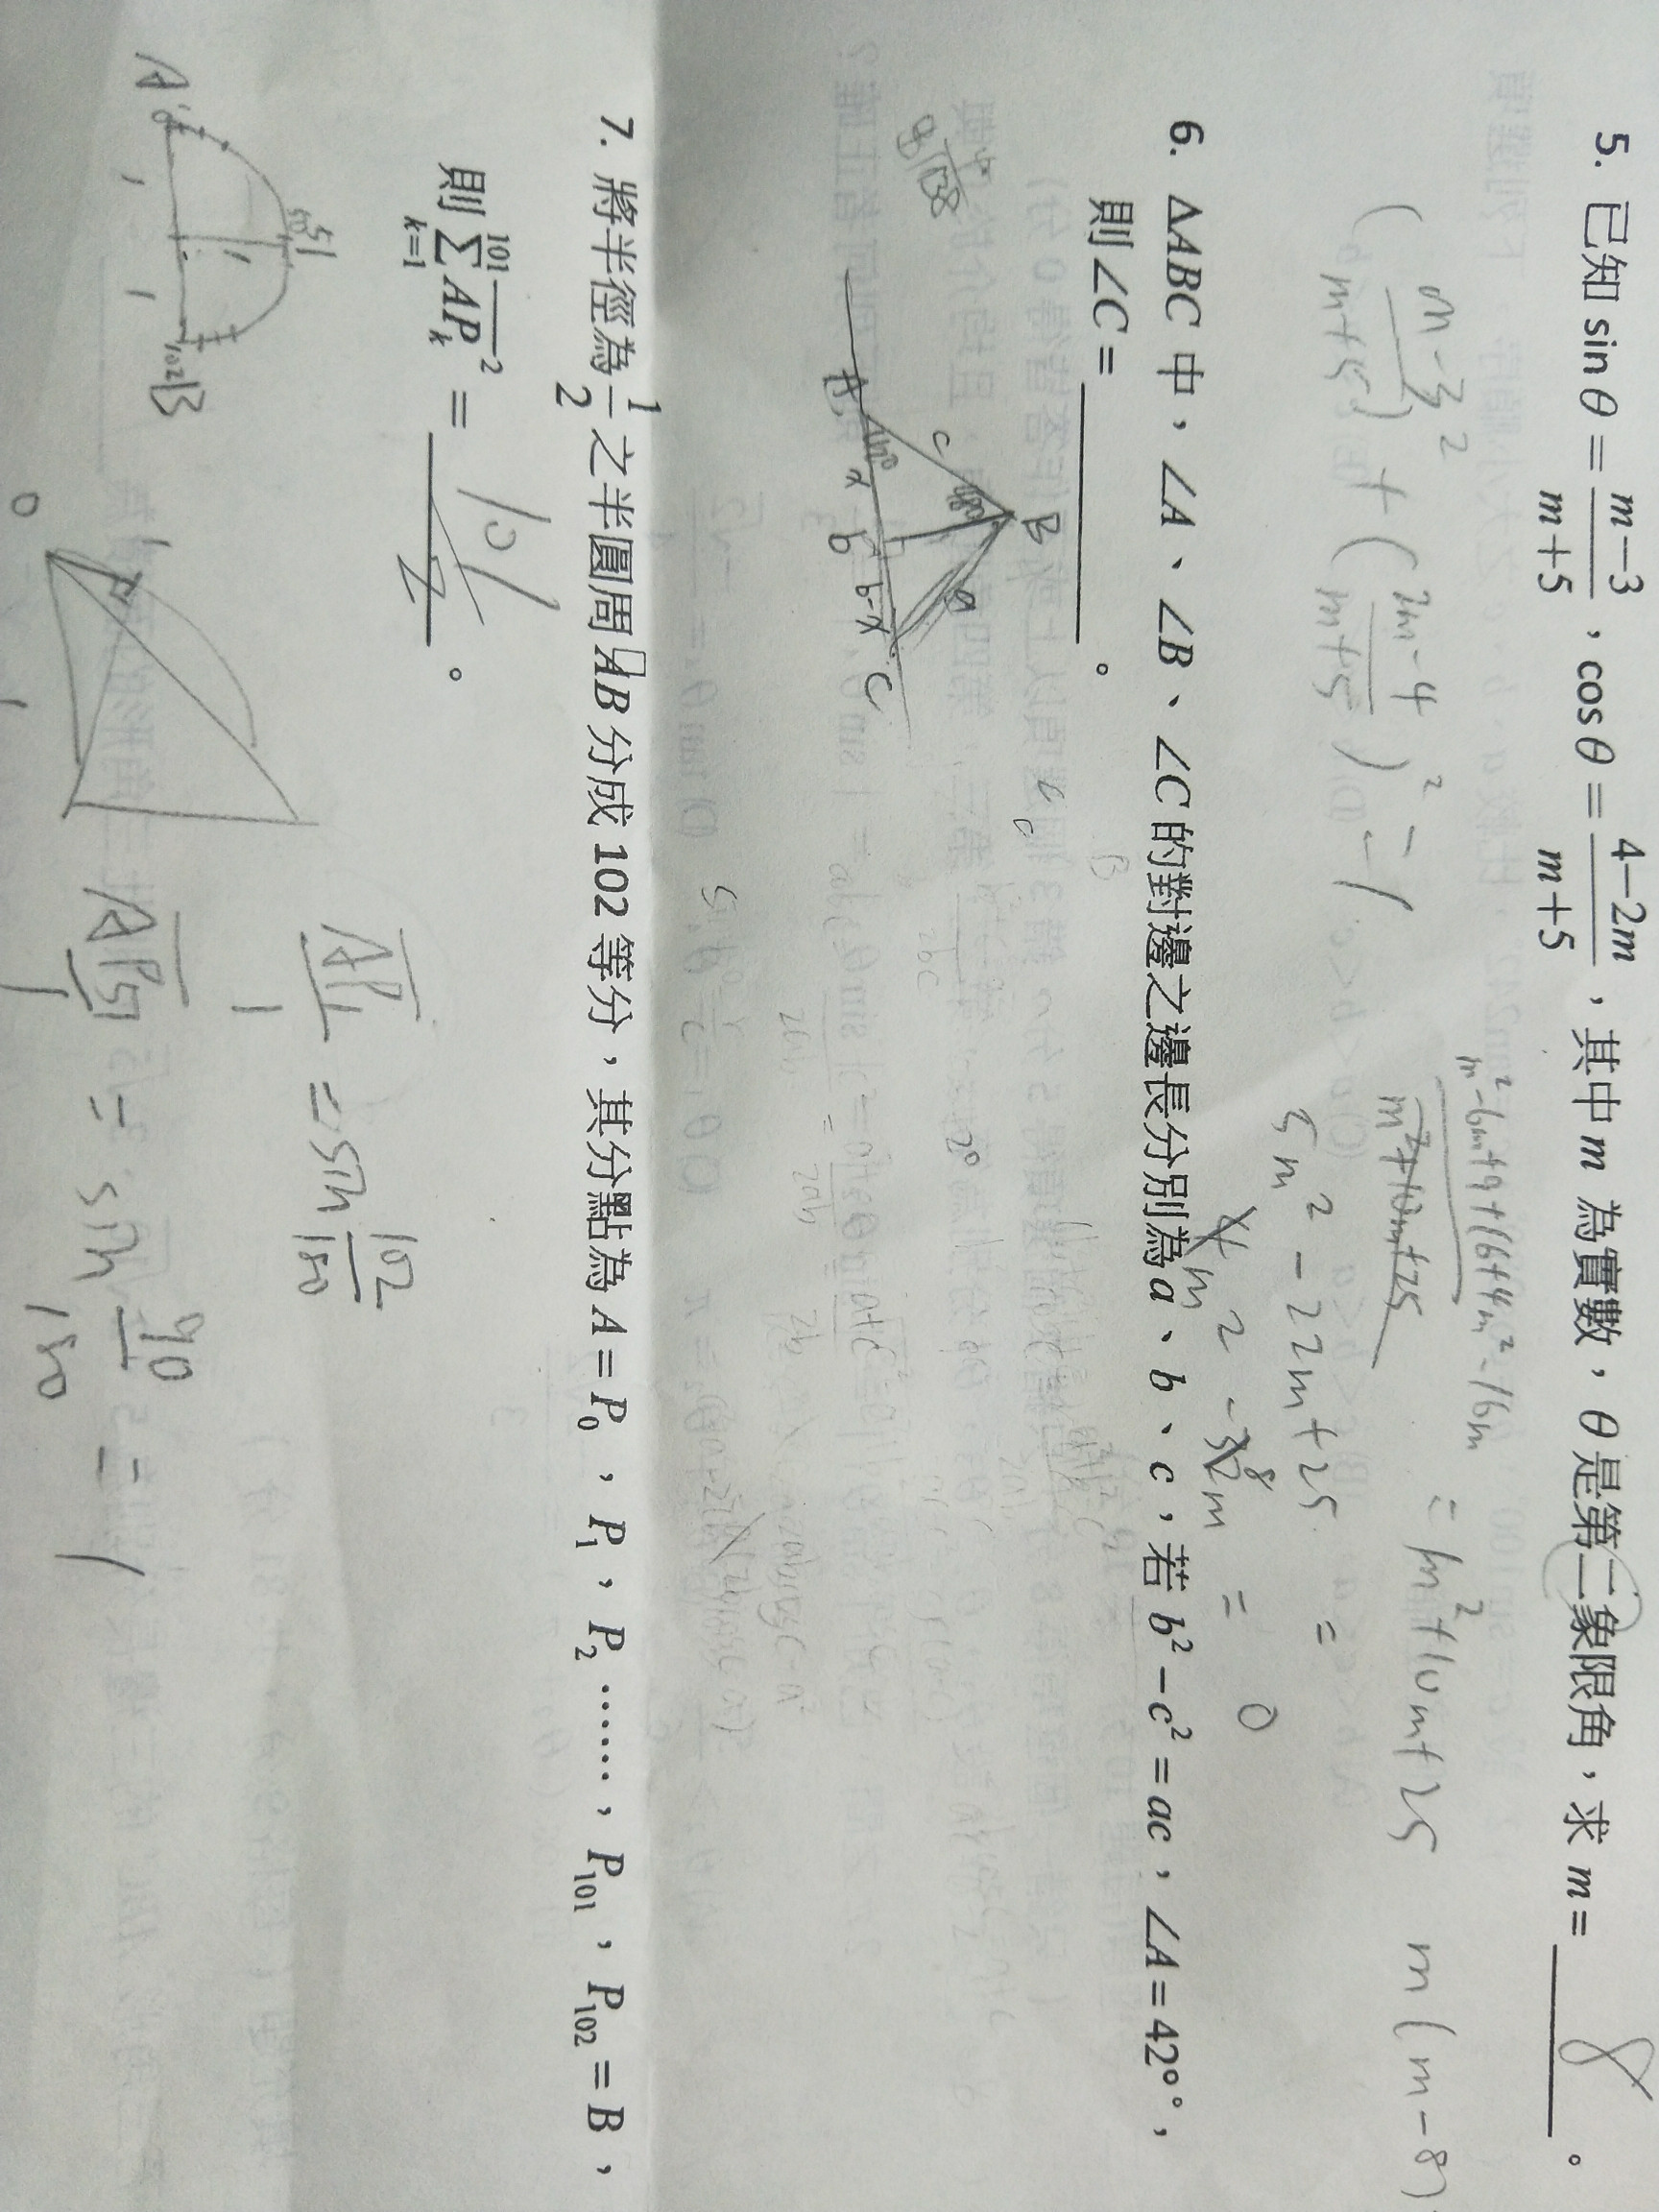 5. 已知 sin θ = (m−3)/(m+5)，cos θ = (4−2m)/(m+5)，其中 m 為實數，θ 是第二象限角，求 m = 8 。
(m-3/m+5)² + (2m-4/m+5)² = 1
m²-6m+9+16+4m²-16m
m²+10m+25
= m²+10m+25
m(m-8)
5m²-22m+25 =
4m²-32m = 0
8
6. ΔABC 中，∠A、∠B、∠C 的對邊之邊長分別為 a、b、c，若 b²−c²=ac，∠A=42°°，
則∠C = 。
B
c
a
A
x
b
b-x
C
7. 將半徑為 1/2 之半圓周 AB 分成 102 等分，其分點為 A=P₀，P₁，P₂……，P₁₀₁，P₁₀₂=B，
則 ∑(k=1→101) APₖ² = 101/2 。
AP₁/1 = sin 102/180
A
0
51
102
B
1
1
AP₅₁/1 = sin 90/180 = 1